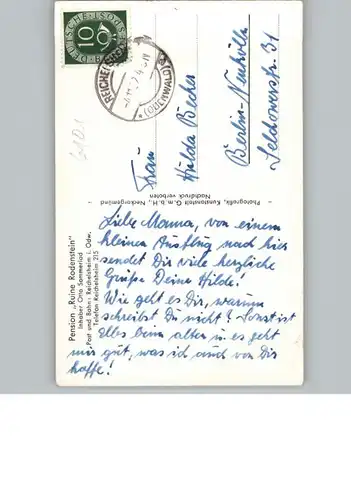 DEUTSCHE BUNDESPOST
10
REICHELSHEIM
(ODENWALD)
6101
Frau
Hilda Becher
Berlin-Neukölln
31
Photografik, Kunstanstalt G.m.b.H., Neckargemünd
Nachdruck verboten
Pension „Ruine Rodenstein"
Inhaber Otto Sommerlad
Post und Bahn: Reichelsheim i. Odw.
Telefon Reichelsheim 215
Liebe Mamma, von einem
kleinen Ausflug nach hier
sendet Dir viele herzliche
Grüße Deine Hilde!
Wie geht es Dir, warum
schreibst Du nicht? Sonst ist
alles beim alten u. es geht
mir gut, was ich auch von Dir
hoffe!